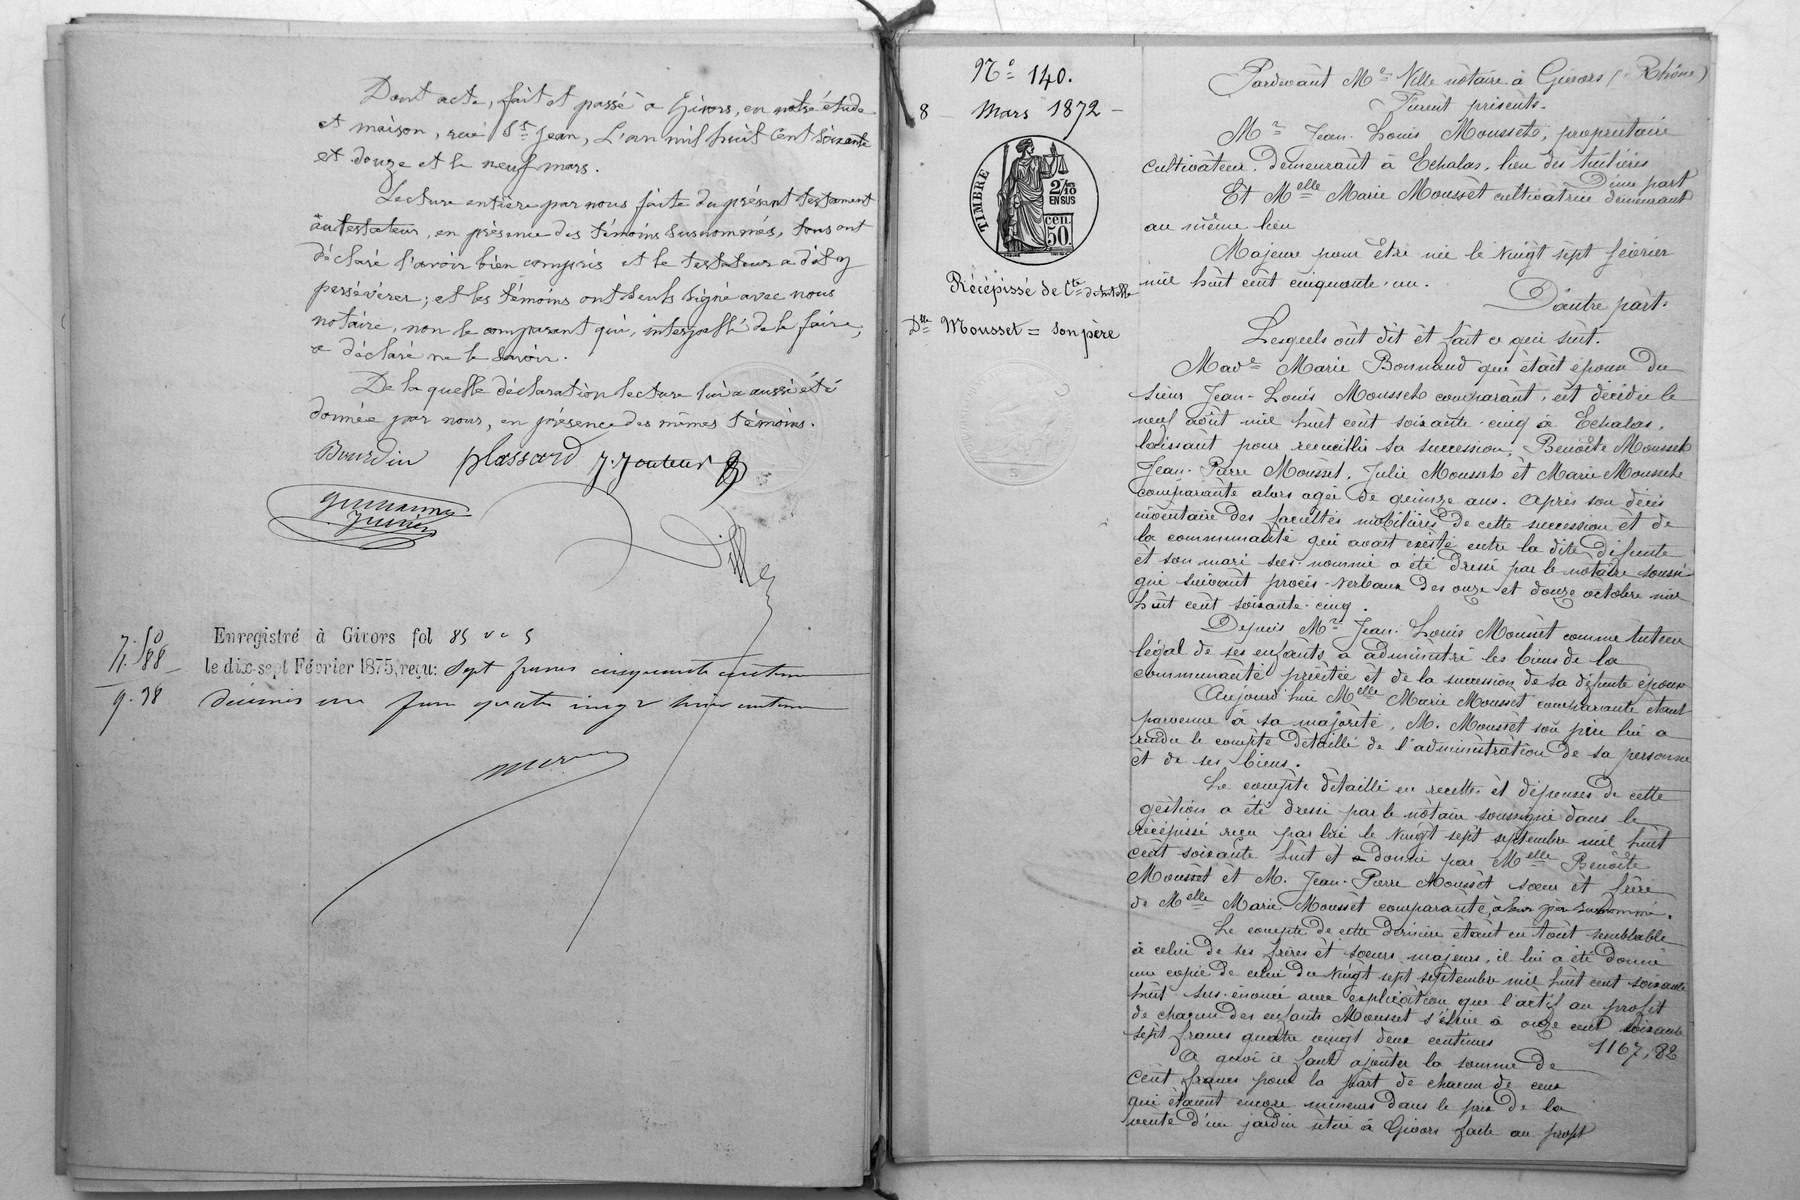 Dont acte, fait et passé à Givors, en notre étude
et maison, rue St Jean, L'an mil huit cent soixante
et douze et le neuf mars.
Lecture entière par nous faite du présent testament
au testateur, en présence des témoins susnommés, tous ont
déclaré l'avoir bien compris et le testateur a dit y
persévérer; et les témoins ont seuls signé avec nous
notaire, non le comparant qui, interpellé de le faire,
a déclaré ne le savoir.
De laquelle déclaration lecture lui a aussi été
donnée par nous, en présence des mêmes témoins.
Bourdin plassard J. Jouteur
Ville
7.50
1.88
9.38
Enregistré à Givors fol 85 vo c 5
le dix-sept Février 1875, reçu: Sept francs cinquante centimes
decimes un franc quatre vingt huit centimes
No 140.
8 Mars 1872
TIMBRE
2/10
EN SUS
50 cen.
Récépissé de Cte de tutelle
Dlle Mousset = son père
Pardevant Me Ville notaire à Givors (Rhône)
Furent présents.
Mr Jean-Louis Mousset, propriétaire
cultivateur, demeurant à Echalas, lieu des Tuilières
D'une part
Et Melle Marie Mousset cultivatrice demeurant
au même lieu
Majeure pour être née le vingt sept février
mil huit cent cinquante-un.
D'autre part.
Lesquels ont dit et fait ce qui suit.
Made Marie Bonnand qui était épouse du
sieur Jean-Louis Mousset comparant, est décédée le
neuf août mil huit cent soixante-cinq à Echalas,
laissant pour recueillir sa succession, Benoîte Mousset
Jean-Pierre Mousset, Julie Mousset et Marie Mousset
comparante alors agée de quinze ans. Après son décès
inventaire des facultés mobilières de cette succession et de
la communauté qui avait existé entre la dite défunte
et son mari sus-nommé a été dressé par le notaire soussi-
gné suivant procès-verbaux des onze et douze octobre mil
huit cent soixante-cinq.
Depuis Mr Jean-Louis Mousset comme tuteur
légal de ses enfants, a administré les biens de la
communauté précitée et de la succession de sa défunte épouse
Aujourd'hui Melle Marie Mousset comparante étant
parvenue à sa majorité, M. Mousset son père lui a
rendu le compte détaillé de l'administration de sa personne
et de ses biens.
Le compte détaillé en recettes et dépenses de cette
gestion a été dressé par le notaire soussigné dans le
récépissé reçu par lui le vingt sept septembre mil huit
cent soixante huit et donné par Melle Benoîte
Mousset et M. Jean-Pierre Mousset sœur et frère
de Melle Marie Mousset comparante, à leur père susnommé.
Le compte de cette dernière étant en tout semblable
à celui de ses frères et sœurs majeurs, il lui a été donné
une copie de celui du vingt sept septembre mil huit cent soixante
huit sus-énoncé avec explication que l'actif au profit
de chacun des enfants Mousset s'élève à onze cent soixante
sept francs quatre vingt deux centimes 1167,82
A quoi il faut ajouter la somme de
cent francs pour la part de chacun de ceux
qui étaient encore mineurs dans le prix de la
vente d'un jardin situé à Givors faite au profit